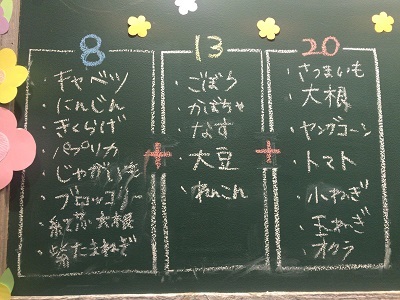 8
・キャベツ
・にんじん
・きくらげ
・パプリカ
・じゃがいも
・ブロッコリー
・紫たまねぎ
+
13
・ごぼう
・かぼちゃ
・なす
・大豆
・れんこん
+
20
・さつまいも
・大根
・ヤングコーン
・トマト
・小ねぎ
・玉ねぎ
・オクラ